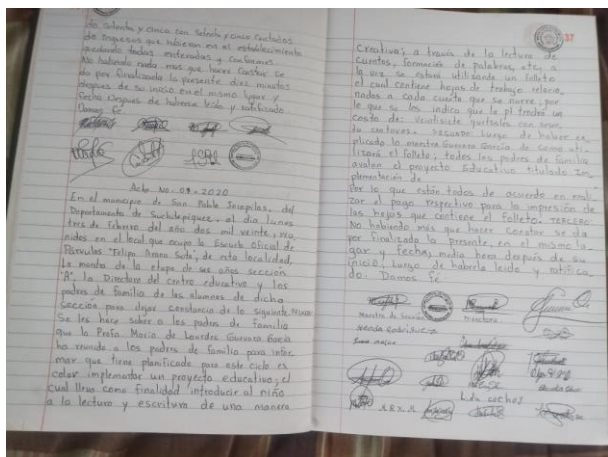 do setenta y cinco con setenta y cinco centavos
de ingresos que hubieron en el establecimiento
quedando todos enterados y conformes.
No habiendo nada mas que hacer constar se
da por finalizada la presente diez minutos
despues de su inicio en el mismo lugar y
fecha. Despues de haberse leido y ratificado
Damos fé
Acta No. 04-2020
En el municipio de San Pablo Jocopilas, del
Departamento de Suchitepéquez, el día lunes
tres de febrero del año dos mil veinte, reu
nidos en el local que ocupa la Escuela Oficial de
Párvulos "Felipa Arana Soto", de esta localidad,
La maestra de la etapa de seis años sección
"A", la Directora del centro educativo y los
padres de familia de los alumnos de dicha
sección para dejar constancia de lo siguiente
Se les hace saber a los padres de familia
que la Profa. María de Lourdes Guevara García
ha reunido a los padres de familia para infor
mar que tiene planificado para este ciclo es
colar implementar un proyecto educativo, el
cual lleva como finalidad introducir al niño
a la lectura y escritura de una manera
37
Creativa; a través de la lectura de
cuentos, formación de palabras, etc; a
la vez se estará utilizando un folleto
el cual contiene hojas de trabajo relacio
nados a cada cuento que se narre; por
lo que se les indica que le tendrá un
costo de: Veintisiete quetzales con
centavos. SEGUNDO: Luego de haber ex
plicado la maestra Guevara García de como uti
lizará el folleto; todos los padres de familia
avalan el proyecto Educativo titulado Im
plementación de
Por lo que están todos de acuerdo en reali
zar el pago respectivo para la impresión de
las hojas que contiene el folleto. TERCERO:
No habiendo más que hacer constar se da
por finalizada la presente, en el mismo lu
gar y fecha, media hora después de su
inicio; luego de haberla leido y ratifica
do. Damos fé
Maestra de Sección
Directora